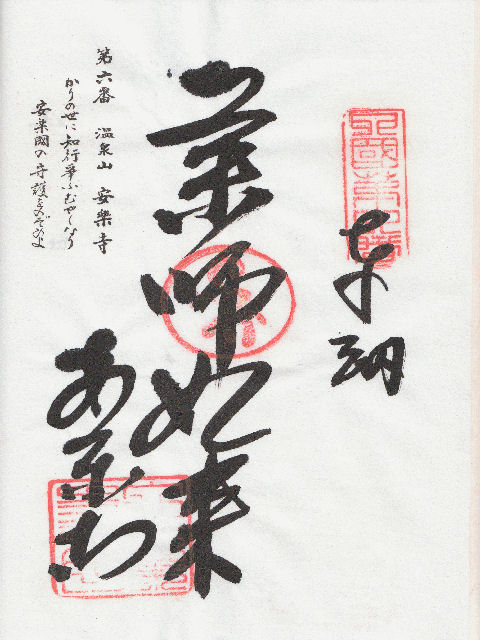 奉納
薬師如来
あ楽寺
第六番 温泉山 安楽寺
かりの世に知行争ふむやくなり
安楽国の守護をのぞめよ